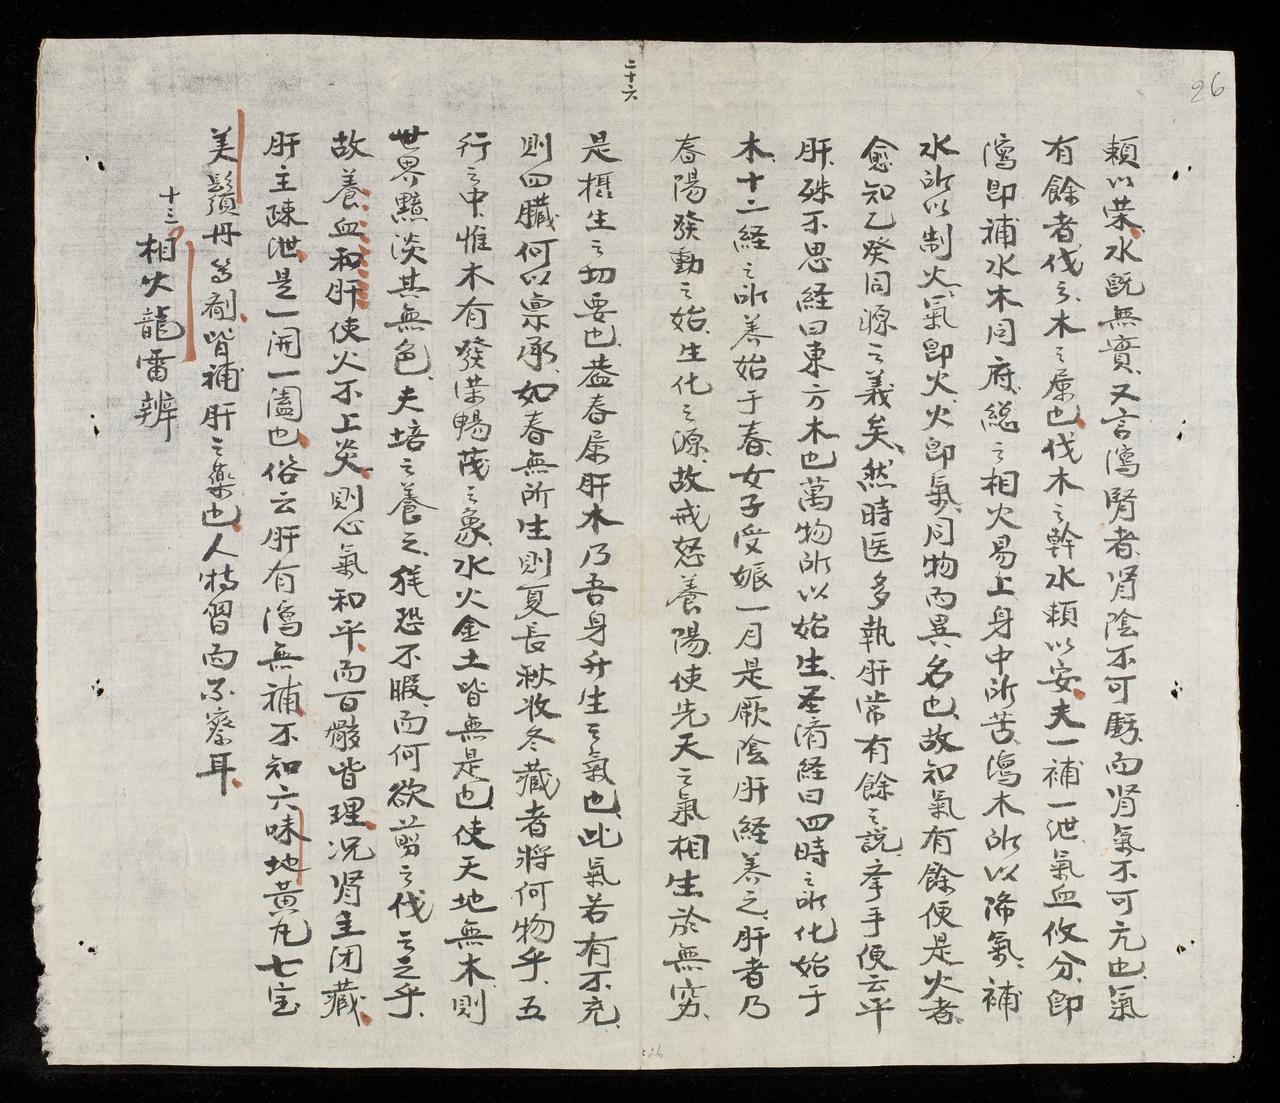 26
頼以荣水旣無實又言瀉腎者肾陰不可虧而肾氣不可亢也氣
有餘者伐之木之属也伐木之幹水頼以安夫一補一泄氣血攸分卽
瀉卽補水木同府総之相火易上身中所苦瀉木所以降氣補
水所以制火氣卽火火卽氣同物而異名也故知氣有餘便是火者
愈知乙癸同源之義矣然時医多執肝常有餘之説举手便云平
肝殊不思経曰東方木也萬物所以始生圣済経曰四時之所化始于
木十二経之所养始于春女子受娠一月是厥陰肝経养之肝者乃
春陽發動之始生化之源故戒怒養陽使先天之氣相生於無穷
二十六
是摂生之切要也盖春属肝木乃吾身升生之氣也此氣若有不充
則四臓何以禀承如春無所生則夏長秋收冬藏者將何物乎五
行之中惟木有發荣暢茂之象水火金土皆無是也使天地無木則
世界黯淡其無色夫培之養之猶恐不暇而何欲剪之伐之之乎
故養血和肝使火不上炎則心氣和平而百骸皆理况肾主闭藏
肝主疎泄是一開一闔也俗云肝有瀉無補不知六味地黃丸七宝
美鬚丹等剤皆補肝之藥也人特習而不察耳
十三相火龍雷辨
26